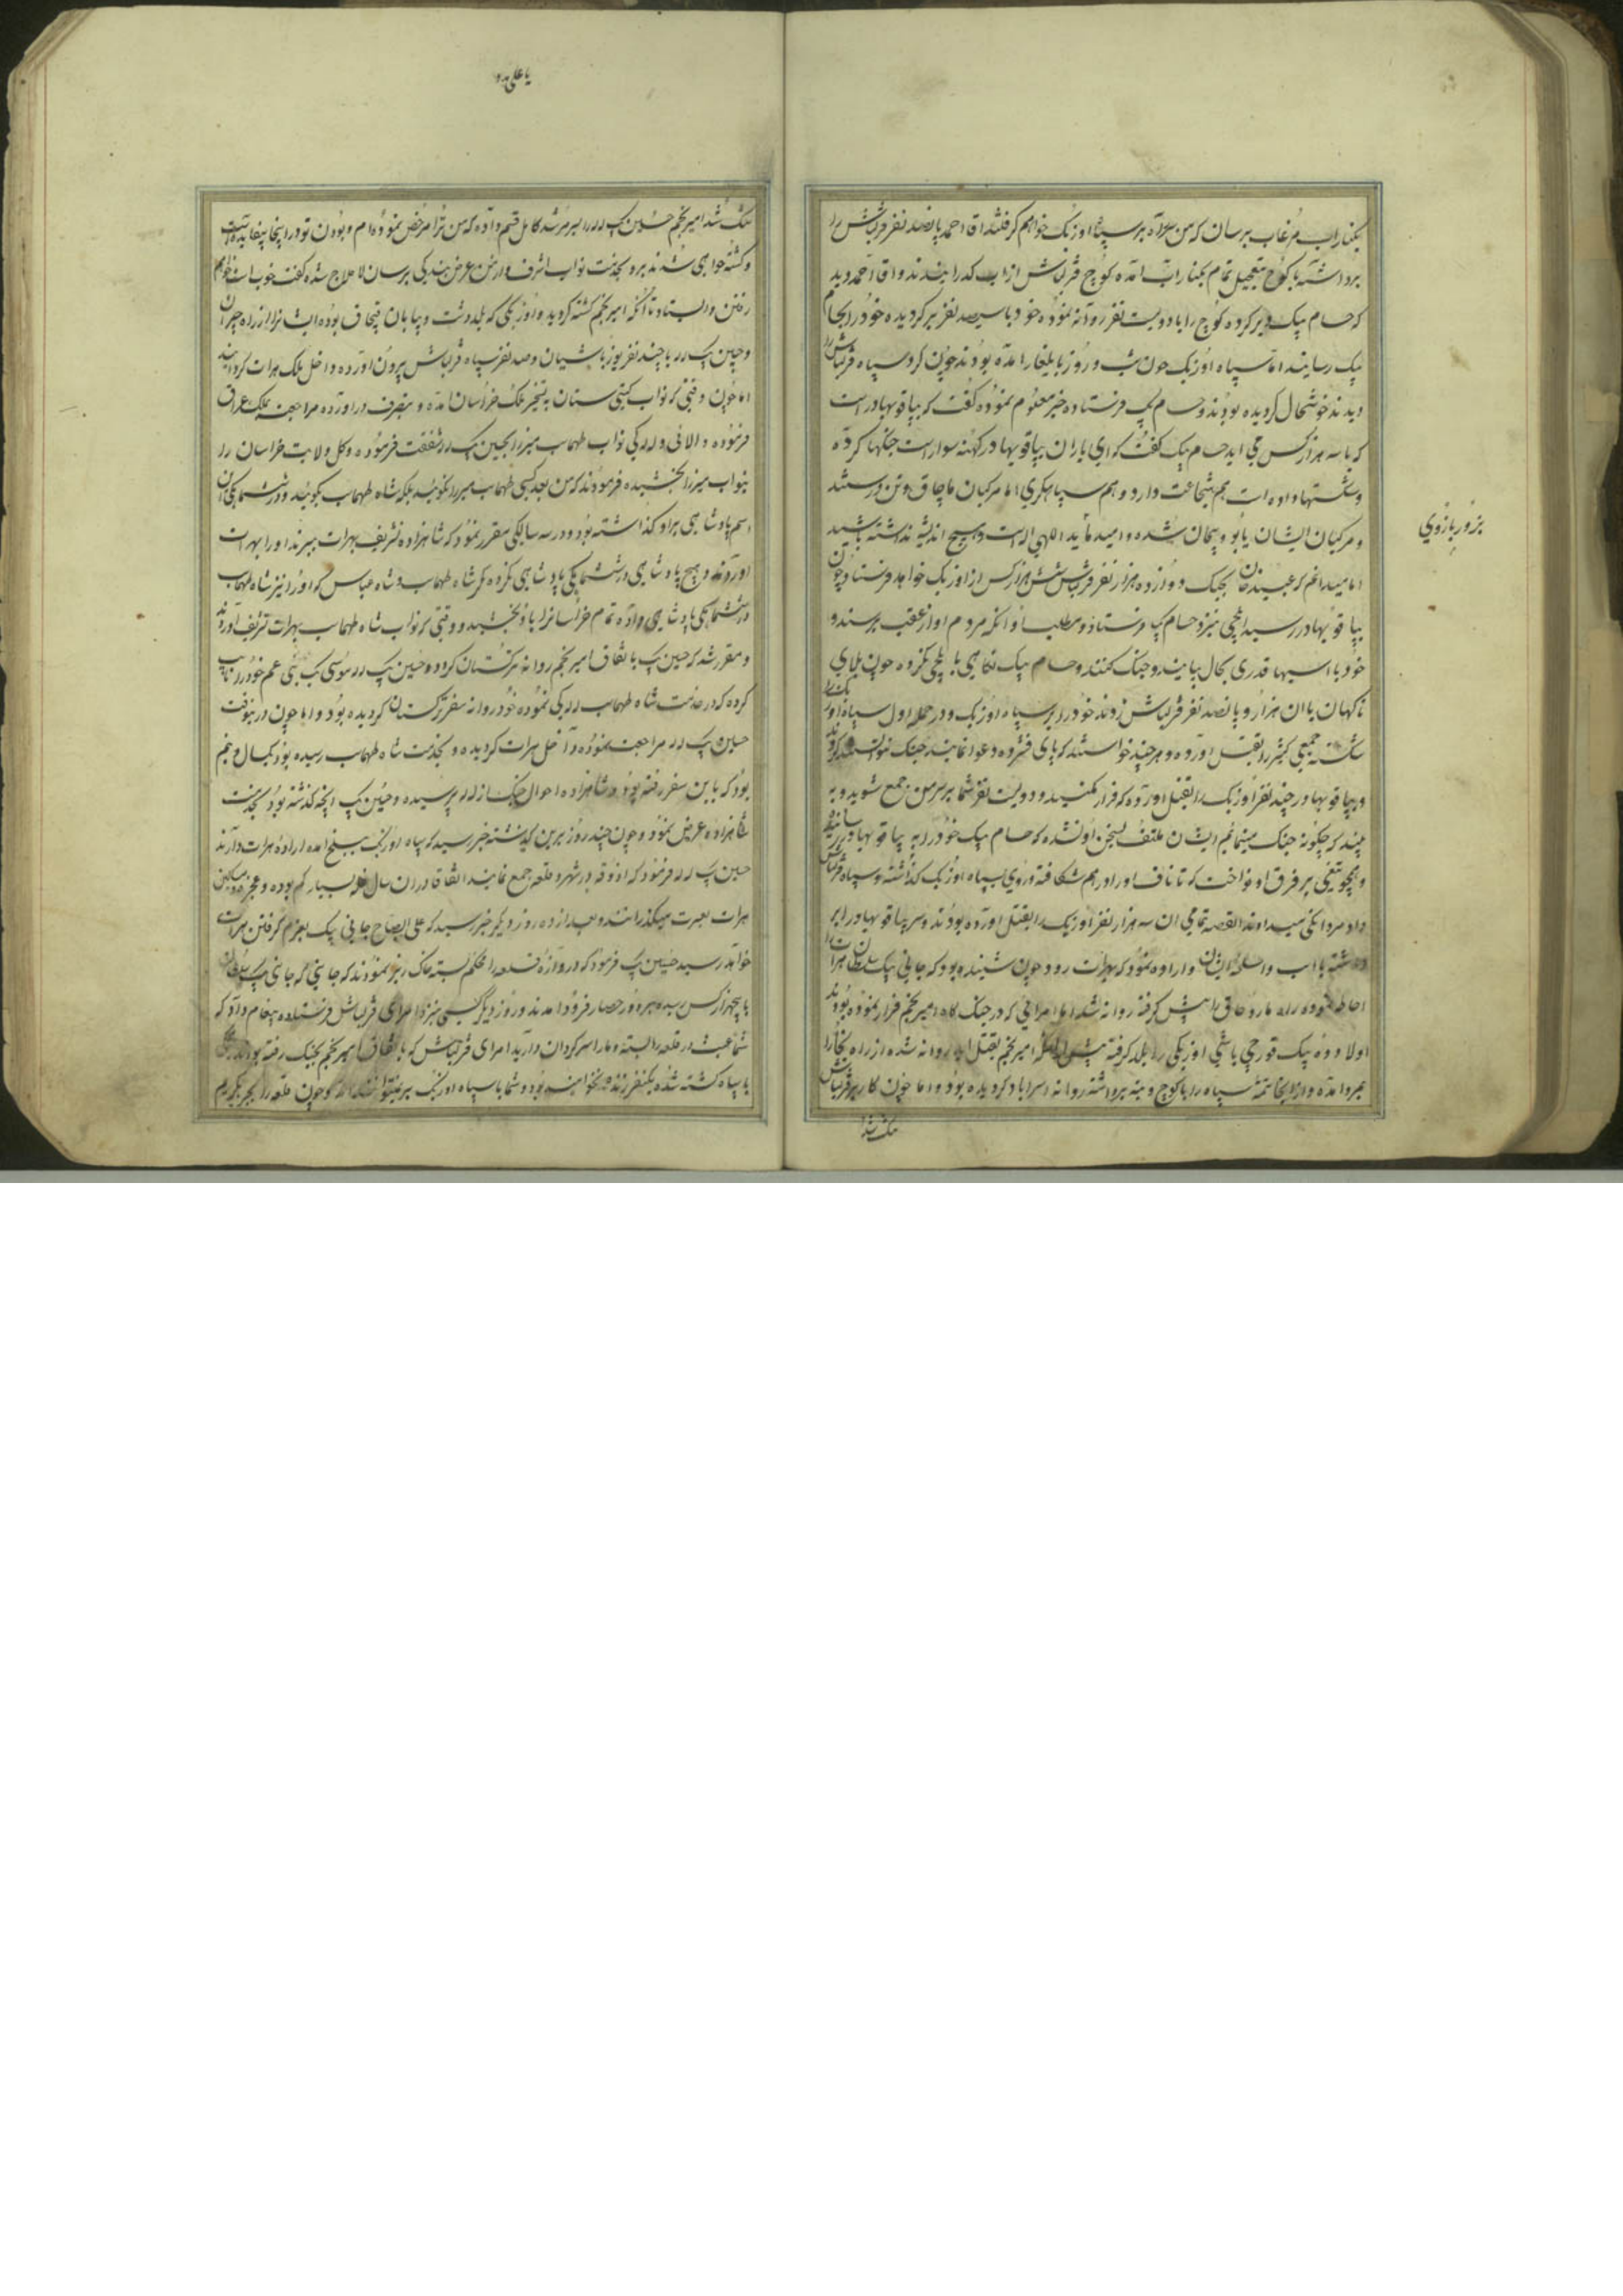 بکنار اب مرغاب برسان که من سر راه بر سپاه اوزبک خواهم کرفت اقا احمد پانصد نفر قزلباش را
برداشته با کوچ بتعجیل تمام بکنار اب امده کوچ قزلباش از اب کذرانیدند و اقا احمد دید
که حسام بیک دیر کرده کوچ را با دویست نفر روانه نموده خود با سیصد نفر برکردیده خود را بحسام
بیک رسانید اما سپاه اوزبک چون شب و روز بایلغار امده بودند چون کرد سپاه قزلباش را
دیدند خوشحال کردیده بودند و حسام بیک فرستاده خبر معلوم نموده کفت که بیاقو بهادر است
که با سه هزار کس می اید حسام بیک کفت که ای یاران بیاقو بهادر کهنه سوار است جنکها کرده
و شکستها داده است هم شجاعت دارد و هم سپاهکری اما مرکبان ما چاق و تن درستند
و مرکبان ایشان یابو و پیجان شده و امید بتایید اللهی است و هیچ اندیشه نداشته باشید
اما میدانم که عبید خان بجنک دوازده هزار نفر قزلباش شش هزار کس از اوزبک خواهد فرستاد و چون
بیاقو بهادر رسید ایلچی بنزد حسام بیک فرستاد و مطلب او انکه مردم او از عقب برسند و
خود با اسبها قدری بحال بیایند و جنک کنند و حسام بیک نکاهی بایلچی نکرده چون بلای
ناکهان با ان هزار و پانصد نفر قزلباش زدند خود را بر سپاه اوزبک و در حمله اول سپاه اوزبک را
شکسته جمعی کثیر را بقتل اورده و هرچند خواستند که پای فشرده دعوا نمایند جنک نتوانستند کرد
و بیاقو بهادر چند نفر اوزبک را بقتل اورده که فرار مکنید و دویست نفر شما بر سر من جمع شوید و به
بینید که چکونه جنک مینمایم ایشان ملتفت بسخن او نشده که حسام بیک خود را به بیاقو بهادر رسانیده
و همچو تیغی بر فرق او نواخت که تا ناف او را در هم شکافته و روی بسپاه اوزبک کذاشته و سپاه قزلباش
داد مردانکی میدادند القصه تمامی ان سه هزار نفر اوزبک را بقتل اورده بودند و سر بیاقو بهادر را بر
داشته با اسب و اسلحه ایشان و اراده نمود که بهرات رود چون شنیده بود که جانی بیک سلطان هرات را
احاطه نموده راه ماروچاق را پیش کرفته روانه شد اما امرائی که در جنک کاه امیر نجم فرار نموده بودند
اولا دده بیک قورچی باشی اوزبکی را بلد کرفته پیش از انکه امیر نجم بقتل اید روانه شده از راه بخارا
بمرو امده و از انجا تتمه سپاه را با کوچ و بنه برداشته روانه استراباد کردیده بود و اما چون کار بر قزلباش
تنک شد
بزور بازوی
یا علی مدد
تنک شد امیر نجم حسین بیک لله را بسر مرشد کامل قسم داده که من ترا مرخص نموده ام و بودن تو در اینجا بیفایده است
و کشته خواهی شد برو بخدمت نواب اشرف و از من عرض بندکی برسان لاعلاج شده کفت خوب است خواهم
رفتن و ایستاد تا انکه امیر نجم کشته کردید و اوزبکی که بلد دشت و بیابان قبچاق بوده ایشانرا از راه چیران
و حسین بیک لله با چند نفر یوزباشیان و صد نفر سپاه قزلباش بیرون اورده و داخل ملک هرات کردانید
اما چون وقتی که نواب کیتی ستان به تسخیر ملک خراسان امده و بتصرف در اورده مراجعت بملک عراق
فرموده و الائی و للکی نواب طهماسب میرزا بحسین بیک لله شفقت فرموده و کل ولایت خراسان را
بنواب میرزا بخشیده فرمودند که من بعد کسی طهماسب میرزا نکوید بلکه شاه طهماسب بکویند و در ششماهکی ان
اسم پادشاهی بر او کذاشته بود و در سه سالکی مقرر نمود که شاهزاده تشریف بهرات ببرند او را بهرات
اوردند و هیچ پادشاهی در ششماهکی پادشاهی نکرده مکر شاه طهماسب و شاه عباس که او را نیز شاه طهماسب
در ششماهکی پادشاهی داده تمام خراسانرا باو بخشید و وقتی که نواب شاه طهماسب بهرات تشریف اوردند
و مقرر شد که حسین بیک باتفاق امیر نجم روانه ترکستان کردد و حسین بیک لله موسی بیک بنی عم خود را نایب
کرده که در خدمت شاه طهماسب للکی نموده خود روانه سفر ترکستان کردیده بود و اما چون در اینوقت
حسین بیک لله مراجعت نموده داخل هرات کردیده و بخدمت شاه طهماسب رسیده بود یکسال و نیم
بود که باین سفر رفته بود و شاهزاده احوال جنک از لله پرسیده و حسین بیک انچه کذشته بود بخدمت
شاهزاده عرض نمود و چون چند روز برین کذشته خبر رسید که سپاه اوزبک ببلخ امده اراده هرات دارند
حسین بیک لله فرمود که اذوقه در شهر و قلعه جمع نمایند اتفاقا در ان سال غله بسیار کم بوده و عجزه و مساکین
هرات بعسرت میکذرانند و بعد از ده روز دیکر خبر رسید که علی الصباح جانی بیک بعزم کرفتن هرات
خواهد رسید حسین بیک فرمود که دروازه قلعه را محکم بسته خاک ریز نمودند که جانی بیک سلطان
با پنجهزار کس رسیده بر دور حصار فرود امدند و روز دیکر کسی بنزد امرای قزلباش فرستاده پیغام داد که
شما عبث در قلعه را بسته و ما را سرکردان دارید امرای قزلباش که باتفاق امیر نجم بجنک رفته بودند همکی
با سپاه کشته شده یکنفر زنده نخواهد بود و شما با سپاه اوزبک بر نمیتوانید امد و چون قلعه را بجبر بکیریم